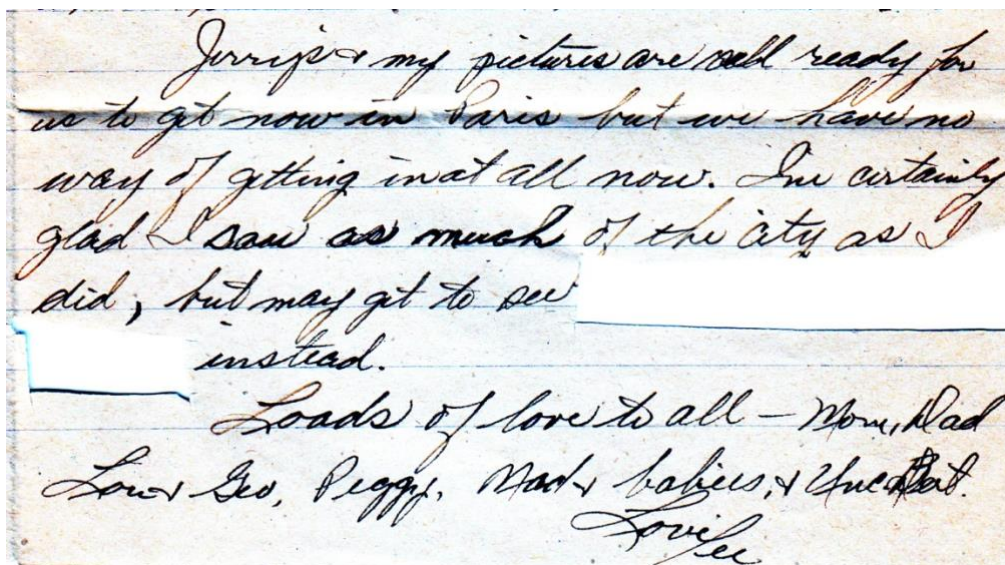 Jerrip & my pictures are all ready for
us to get now in Paris but we have no
way of getting in at all now. I'm certainly
glad I saw as much of the city as I
did, but may get to see
instead.
Loads of love to all – Mom, Dad
Lou & Geo, Peggy, Mad & babies, & Unc
Love
Lee